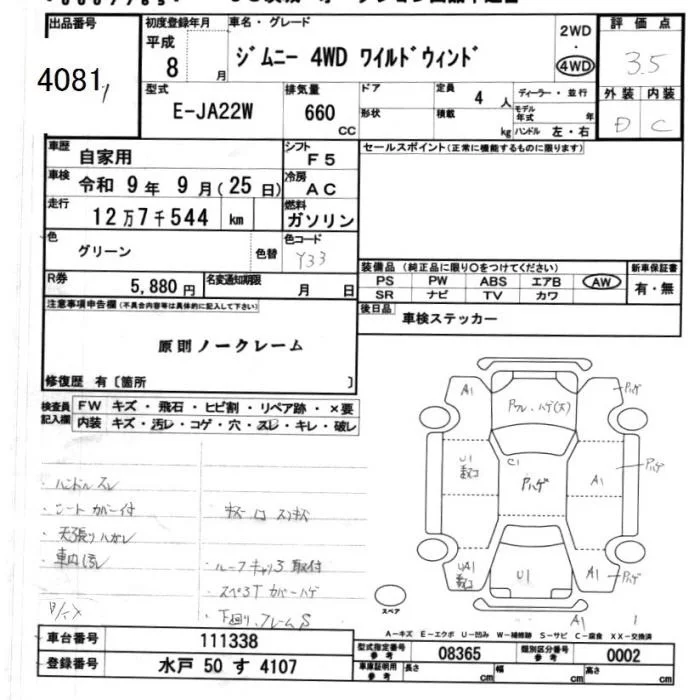 出品番号
4081
初度登録年月
平成
8 月
車名・グレード
ジムニー 4WD ワイルドウィンド
2WD
・
4WD
評価点
3.5
外装 内装
D C
型式
E-JA22W
排気量
660
CC
ドア
形状
定員
4 人
積載
kg
ディーラー・並行
モデル年式 年
ハンドル 左・右
車歴
自家用
シフト
F5
車検
令和 9年 9月(25日)
冷房
AC
走行
12万7千544 km
燃料
ガソリン
色
グリーン
色替
色コード
Y33
R券
5,880円
名変通知期限
月 日
セールスポイント(正常に機能するものに限ります)
装備品 (純正品に限り〇をつけてください)
PS PW ABS エアB AW
SR ナビ TV カワ
新車保証書
有・無
後日品
車検ステッカー
注意事項申告欄(不具合内容等は具体的に記入して下さい)
原則ノークレーム
修復歴 有〔箇所 〕
検査員記入欄
FW キズ・飛石・ヒビ割・リペア跡・×要
内装 キズ・汚レ・コゲ・穴・スレ・キレ・破レ
・ハンドルスレ
・シートカバー付
・天張りハガレ
・車内汚レ
・ルーフキャリア取付
・スペアTカバーハゲ
・下廻り、フレームS
A1
Pフレ・ハゲ(大)
Pハゲ
U1
C1
Pハゲ
A1
Pハゲ
UA1
U1
A1
Pハゲ
A1
スペア
A-キズ E-エクボ U-凹み W-補修跡 S-サビ C-腐食 XX-交換済
車台番号
111338
登録番号
水戸 50 す 4107
型式指定番号
参考
08365
類別区分番号
参考
0002
車庫証明用
参考
長さ cm
幅 cm
高さ cm